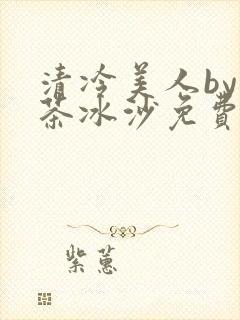 清冷美人by
茶冰沙免費
紫蕙